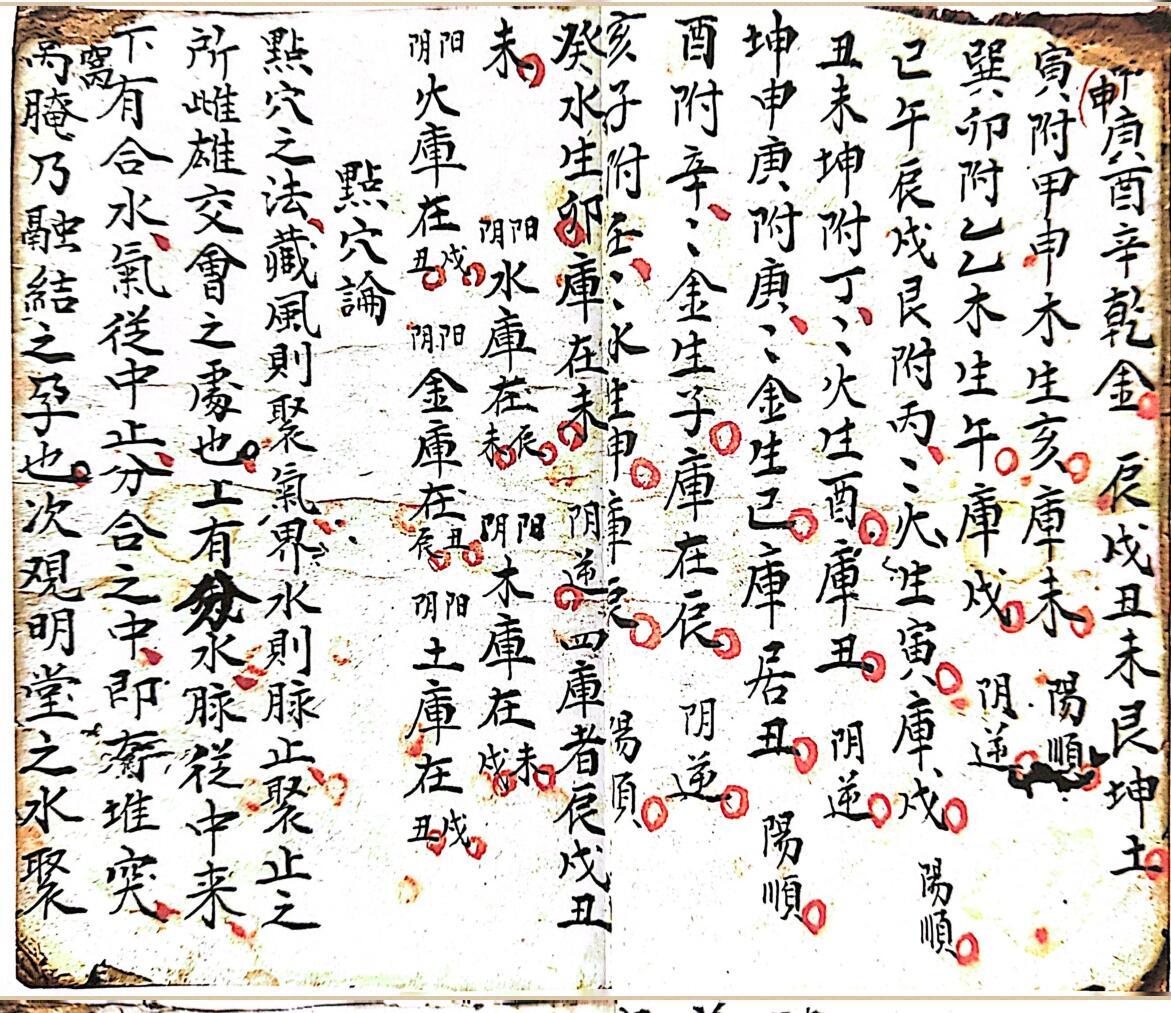 申庚酉辛乾金 辰戌丑未艮坤土
寅附甲申木生亥庫未 陽順
巽卯附乙乙木生午庫戌 阴逆
巳午辰戌艮附丙〻火生寅庫戌 陽順
丑未坤附丁〻火生酉庫丑 阴逆
坤申庚附庚〻金生巳庫居丑 陽順
酉附辛〻金生子庫在辰 阴逆
亥子附壬〻水生申庫辰 陽順
癸水生卯庫在未 阴逆 四庫者辰戌丑
未 阳阴水庫在辰未 阳阴木庫在未戌
阳阴火庫在戌丑 阳阴金庫在丑辰 阳阴土庫在戌丑
點穴論
點穴之法藏風則聚氣界水則脉止聚止之
所雌雄交會之處也上有分水脉從中来
下有合水氣從中止分合之中即堆突
窩腌乃融結之孕也次观明堂之水聚